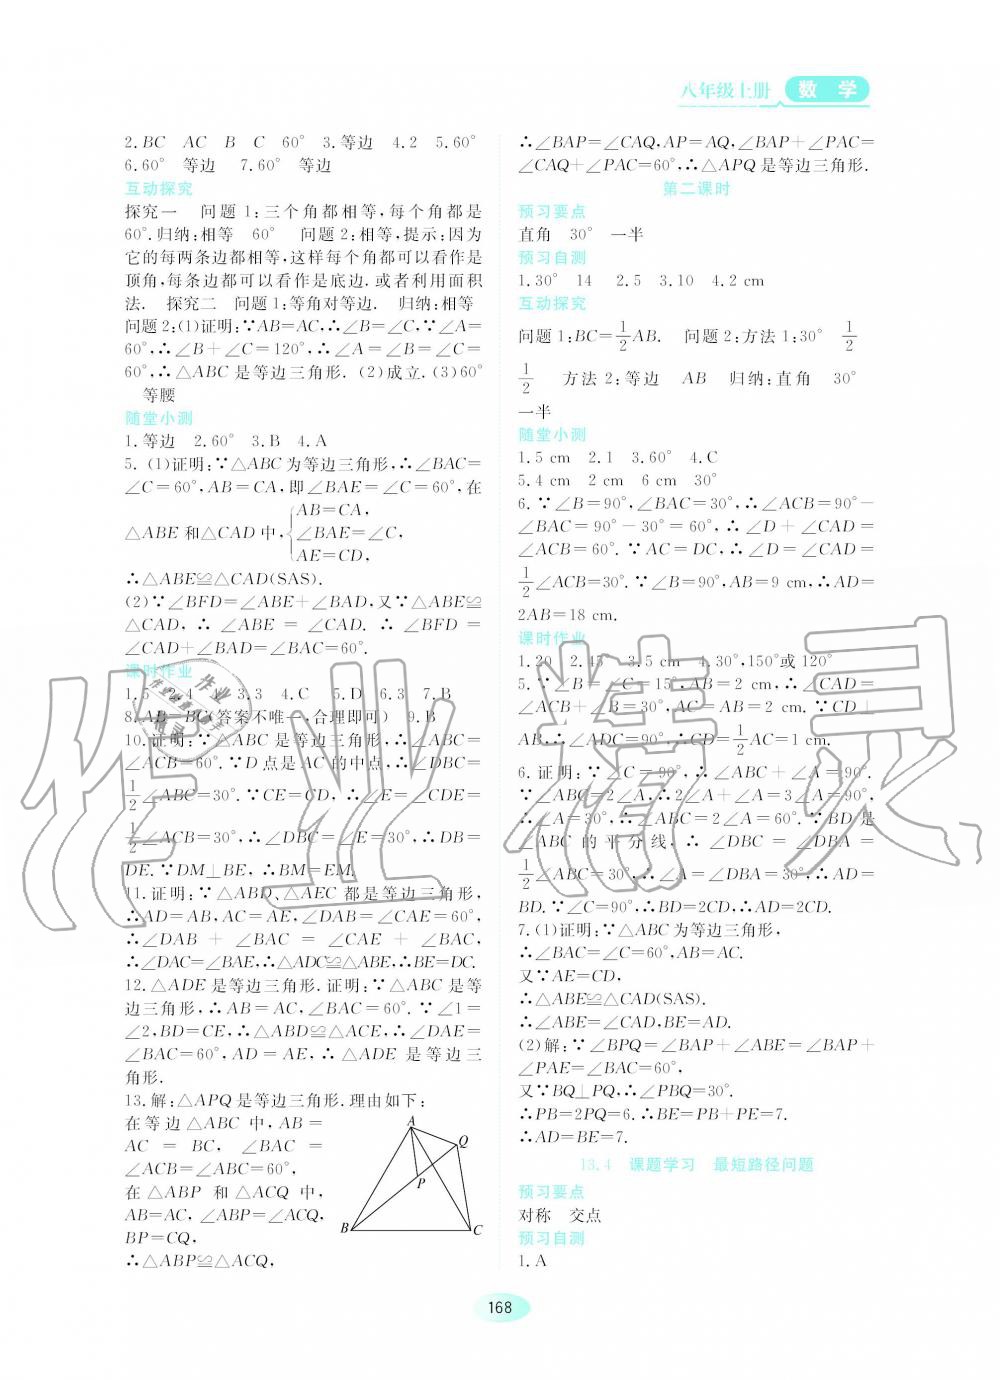 八年级上册 数学
2.BC AC B C 60° 3.等边 4.2 5.60°
6.60° 等边 7.60° 等边
互动探究
探究一 问题1:三个角都相等,每个角都是
60°.归纳:相等 60° 问题2:相等,提示:因为
它的每两条边都相等,这样每个角可以看作是
顶角,每条边都可以看作是底边.或者利用面积
法. 探究二 问题1:等角对等边. 归纳:相等
问题2:(1)证明:∵AB=AC,∴∠B=∠C.∵∠A=
60°,∴∠B+∠C=120°,∴∠A=∠B=∠C=
60°,∴△ABC是等边三角形. (2)成立. (3)60°
等腰
随堂小测
1.等边 2.60° 3.B 4.A
5. (1)证明:∵△ABC为等边三角形,∴∠BAC=
∠C=60°,AB=CA,即∠BAE=∠C=60°,在
△ABE和△CAD中,{AB=CA,
∠BAE=∠C,
AE=CD,
∴△ABE≌△CAD(SAS).
(2)∵∠BFD=∠ABE+∠BAD,又∵△ABE≌
△CAD,∴∠ABE=∠CAD.∴∠BFD=
∠CAD+∠BAD=∠BAC=60°.
课时作业
1.5 2.4 3.3 4.C 5.D 6.3 7.B
8.AB=BC(答案不唯一,合理即可) 9.B
10.证明:∵△ABC是等边三角形,∴∠ABC=
∠ACB=60°.∵D点是AC的中点,∴∠DBC=
1/2∠ABC=30°.∵CE=CD,∴∠E=∠CDE=
1/2∠ACB=30°,∴∠DBC=∠E=30°,∴DB=
DE.∵DM⊥BE,∴BM=EM.
11.证明:∵△ABD、△AEC都是等边三角形,
∴AD=AB,AC=AE,∠DAB=∠CAE=60°,
∴∠DAB+∠BAC=∠CAE+∠BAC,
∴∠DAC=∠BAE,∴△ADC≌△ABE,∴BE=DC.
12.△ADE是等边三角形.证明:∵△ABC是等
边三角形,∴AB=AC,∠BAC=60°.∵∠1=
∠2,BD=CE,∴△ABD≌△ACE,∴∠DAE=
∠BAC=60°,AD=AE,∴△ADE是等边三
角形.
13.解:△APQ是等边三角形.理由如下:
在等边△ABC中,AB=
AC=BC,∠BAC=
∠ACB=∠ABC=60°,
在△ABP和△ACQ中,
AB=AC,∠ABP=∠ACQ,
BP=CQ,
∴△ABP≌△ACQ,
A
Q
P
B
C
∴∠BAP=∠CAQ,AP=AQ,∠BAP+∠PAC=
∠CAQ+∠PAC=60°,∴△APQ是等边三角形.
第二课时
预习要点
直角 30° 一半
预习自测
1.30° 14 2.5 3.10 4.2 cm
互动探究
问题1:BC=1/2AB. 问题2:方法1:30° 1/2
1/2 方法2:等边 AB 归纳:直角 30°
一半
随堂小测
1.5 cm 2.1 3.60° 4.C
5.4 cm 2 cm 6 cm 30°
6.∵∠B=90°,∠BAC=30°,∴∠ACB=90°-
∠BAC=90°-30°=60°,∴∠D+∠CAD=
∠ACB=60°.∵AC=DC,∴∠D=∠CAD=
1/2∠ACB=30°.∵∠B=90°,AB=9 cm,∴AD=
2AB=18 cm.
课时作业
1.20 2.45 3.5 cm 4.30°,150°或120°
5.∵∠B=∠C=15°,∴∠DAC=∠B+
∠ACB=30°.∵AB=2 cm,∴AC=AB=2 cm.∵CD⊥
AB,∴∠ADC=90°,∴CD=1/2AC=1 cm.
6.证明:∵∠C=90°,∴∠ABC+∠A=90°.
∵∠ABC=2∠A,∴2∠A+∠A=3∠A=90°,
∴∠A=30°,∴∠ABC=2∠A=60°.∵BD是
∠ABC的平分线,∴∠DBC=∠DBA=
1/2∠ABC=30°,∴∠A=∠DBA=30°,∴AD=
BD.∵∠C=90°,∴BD=2CD,∴AD=2CD.
7.(1)证明:∵△ABC为等边三角形,
∴∠BAC=∠C=60°,AB=CA.
又∵AE=CD,
∴△ABE≌△CAD(SAS).
∴∠ABE=∠CAD,BE=AD.
(2)解:∵∠BPQ=∠BAP+∠ABE=∠BAP+
∠PAE=∠BAC=60°,
又∵BQ⊥PQ,∴∠PBQ=30°.
∴PB=2PQ=6.∴BE=PB+PE=7.
∴AD=BE=7.
13.4 课题学习 最短路径问题
预习要点
对称 交点
预习自测
1.A
168
作业精灵